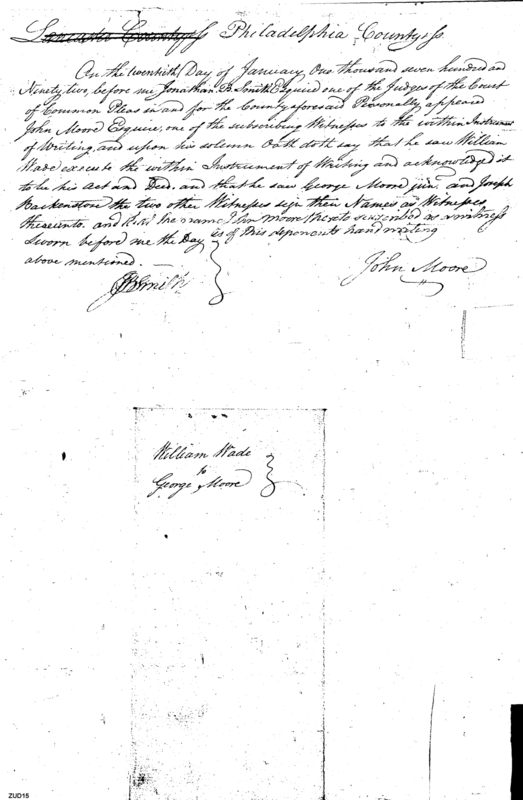 Lancaster County ss Philadelphia County ss.
On the twentieth Day of January One thousand seven hundred and
Ninety two, before me Jonathan B. Smith Esquire one of the Judges of the Court
of Common Pleas in and for the County aforesaid Personally appeared
John Moore Esquire, one of the subscribing Witnesses to the within Instrument
of Writing, and upon his solemn Oath doth say that he saw William
Wade execute the within Instrument of Writing and acknowledge it
to be his Act and Deed. and that he saw George Moore jun. and Joseph
Backenstone the two other Witnesses sign their Names as Witnesses
thereunto. and that the name John Moore thereto subscribed as a witness
Sworn before me the Day is of this deponents hand writing
above mentioned.
JBSmith
John Moore
William Wade
to
George Moore
ZUD15